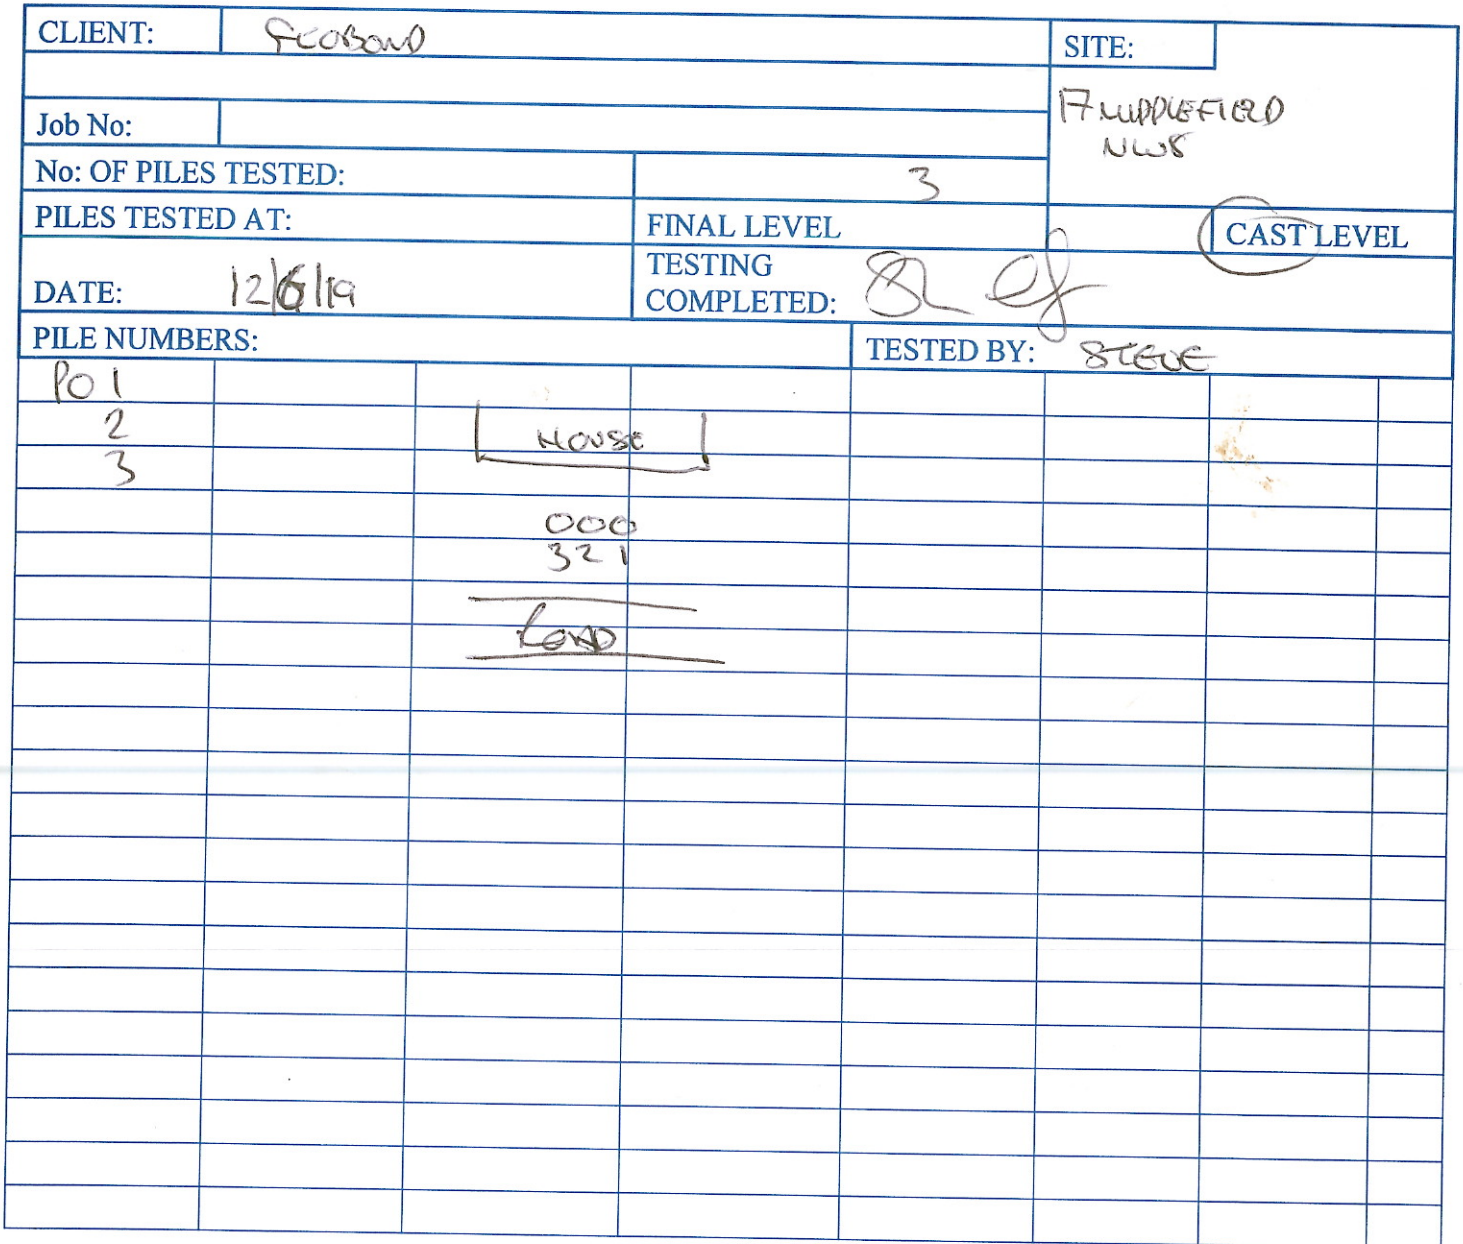 CLIENT: GEOBOND
SITE:
17 MIDDLEFIELD
NW8
Job No:
No: OF PILES TESTED: 3
PILES TESTED AT: FINAL LEVEL CAST LEVEL
DATE: 12/6/19
TESTING
COMPLETED:
PILE NUMBERS: TESTED BY: STEVE
PO 1
2
3
HOUSE
000
321
ROAD